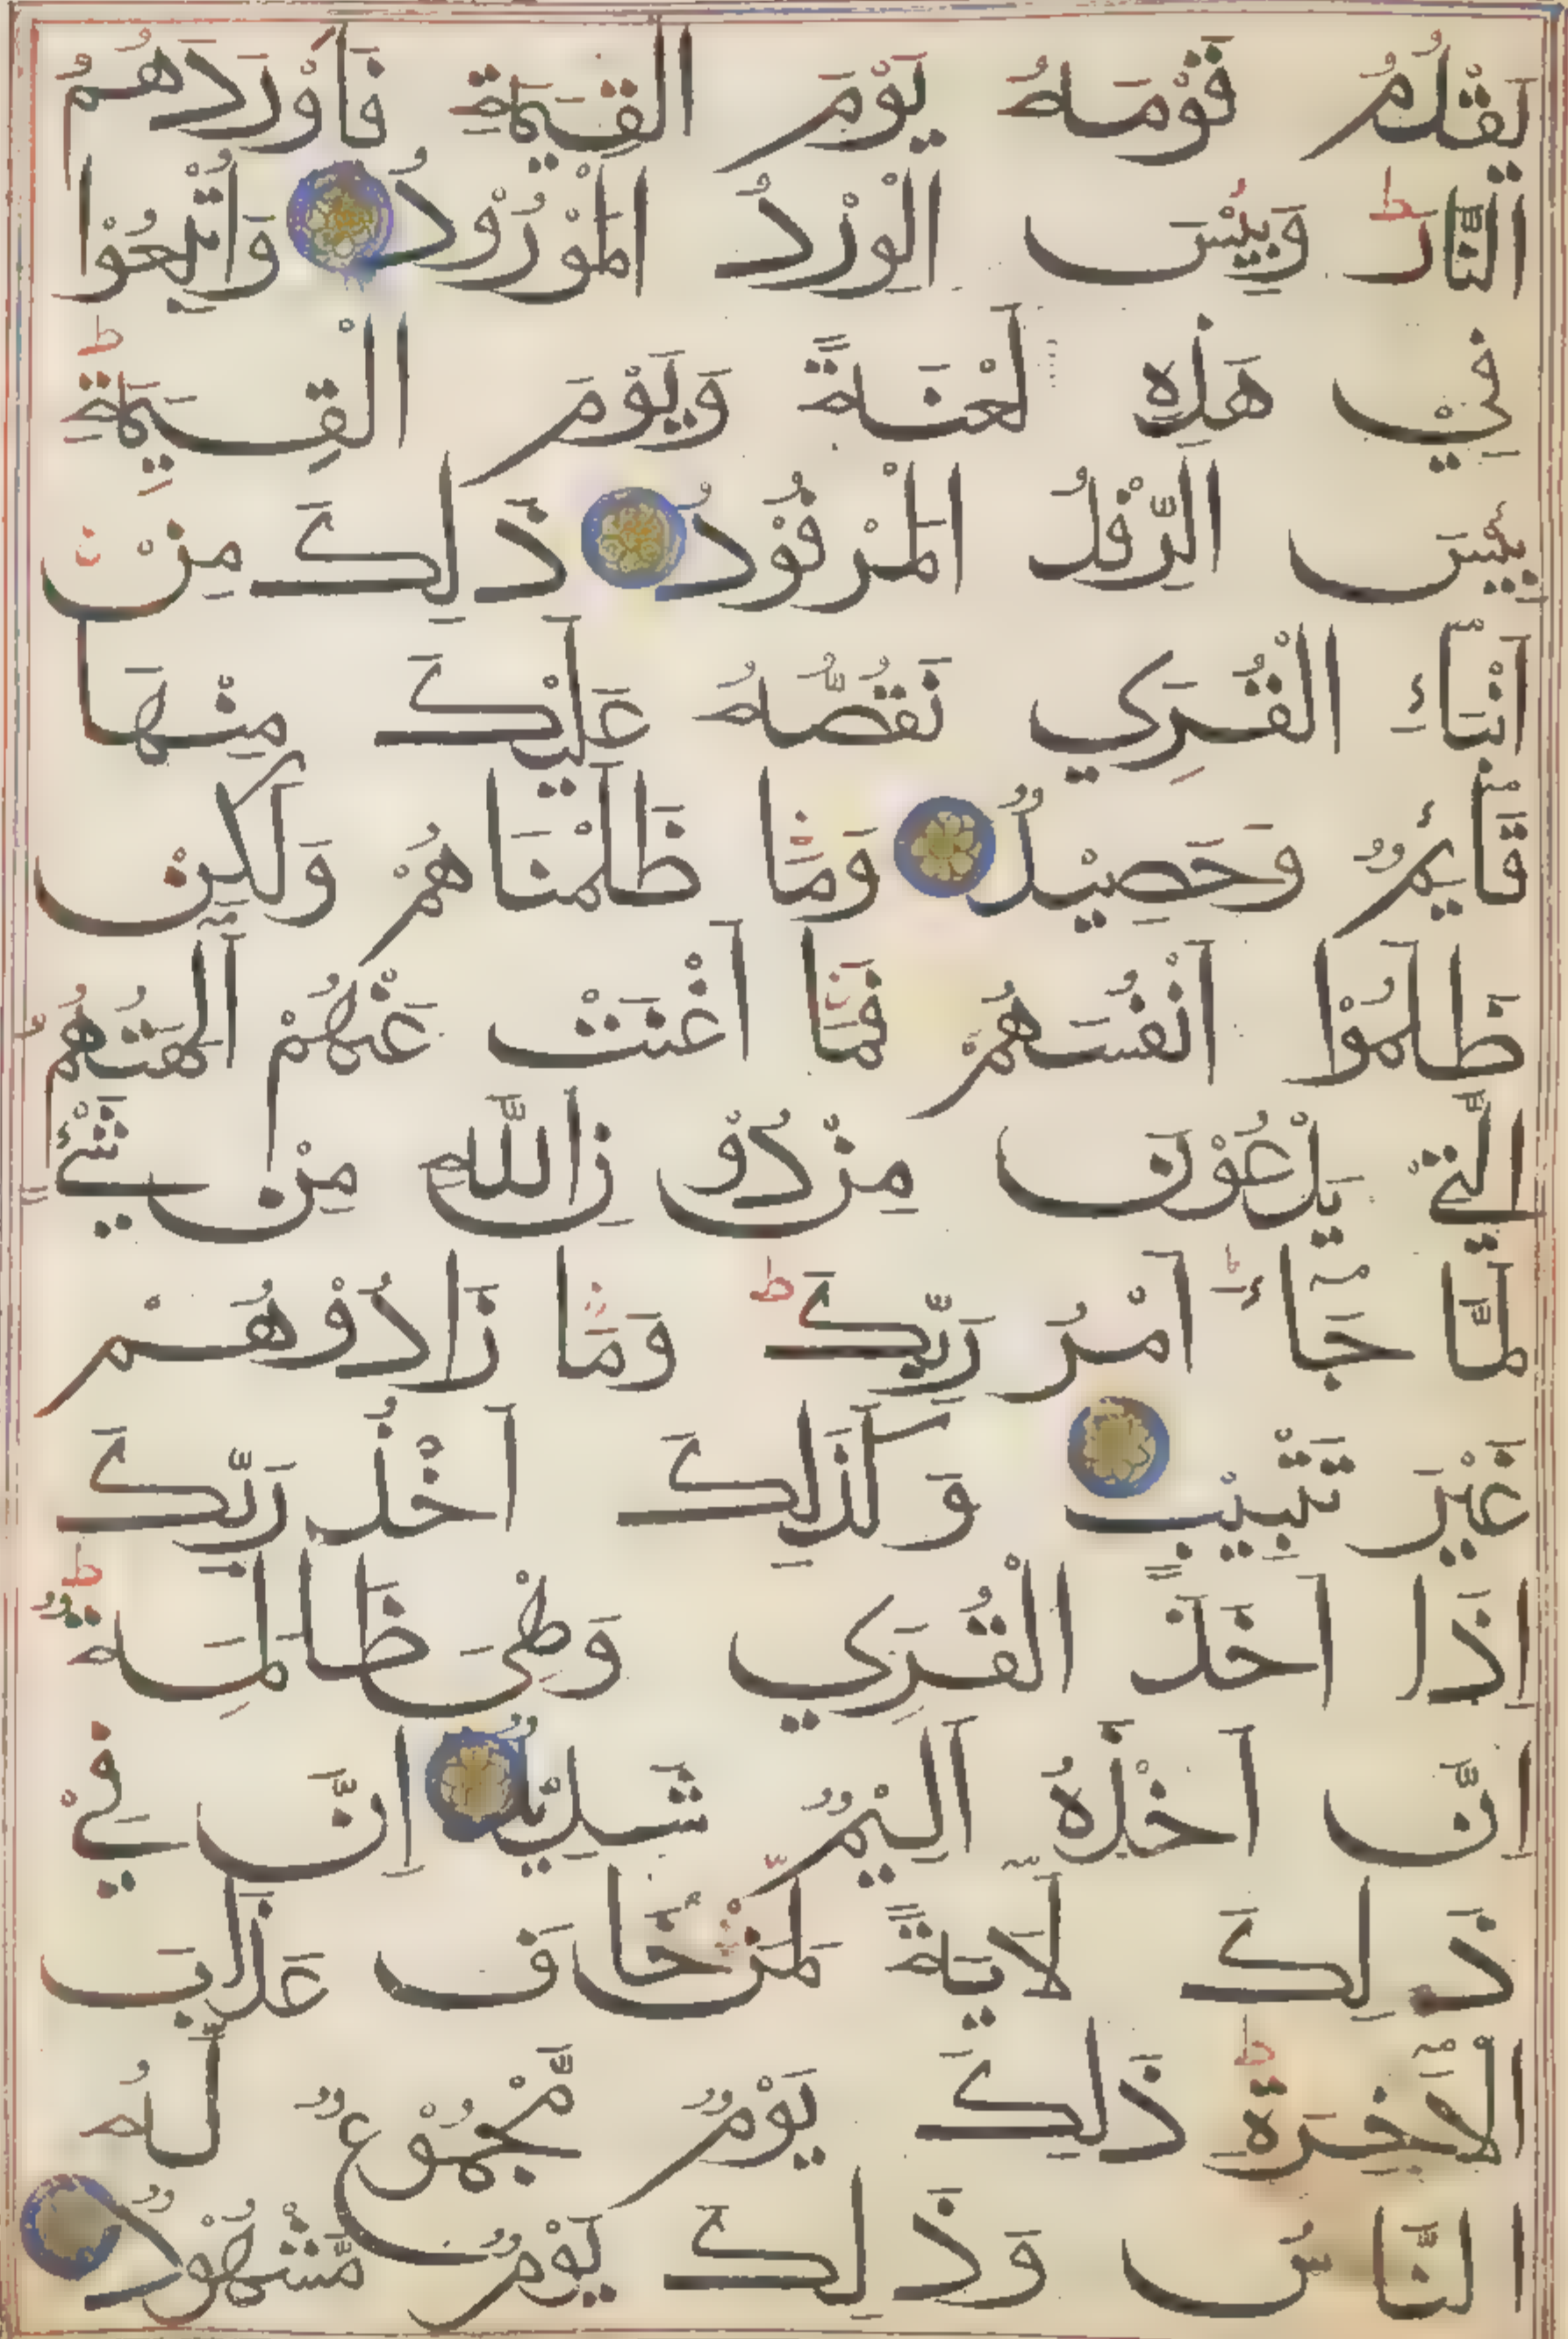 يَقْدُمُ قَوْمَهُ يَوْمَ الْقِيٰمَةِ فَاَوْرَدَهُمُ
النَّارَ ط وَبِئْسَ الْوِرْدُ الْمَوْرُوْدُ وَاُتْبِعُوْا
فِيْ هٰذِهٖ لَعْنَةً وَيَوْمَ الْقِيٰمَةِ ط
بِئْسَ الرِّفْدُ الْمَرْفُوْدُ ذٰلِكَ مِنْ
اَنْبَآءِ الْقُرٰي نَقُصُّهُ عَلَيْكَ مِنْهَا
قَآئِمٌ وَحَصِيْدٌ وَمَا ظَلَمْنَاهُمْ وَلٰكِنْ
ظَلَمُوْا اَنْفُسَهُمْ فَمَا اَغْنَتْ عَنْهُمْ اٰلِهَتُهُمُ
الَّتِيْ يَدْعُوْنَ مِنْ دُوْنِ اللّٰهِ مِنْ شَيْءٍ
لَمَّا جَآءَ اَمْرُ رَبِّكَ ط وَمَا زَادُوْهُمْ
غَيْرَ تَتْبِيْبٍ وَكَذٰلِكَ اَخْذُ رَبِّكَ
اِذَا اَخَذَ الْقُرٰي وَهِيَ ظَالِمَةٌ ط
اِنَّ اَخْذَهُ اَلِيْمٌ شَدِيْدٌ اِنَّ فِيْ
ذٰلِكَ لَاٰيَةً لِمَنْ خَافَ عَذَابَ
الْاٰخِرَةِ ط ذٰلِكَ يَوْمٌ مَّجْمُوْعٌ لَّهُ
النَّاسُ وَذٰلِكَ يَوْمٌ مَّشْهُوْدٌ